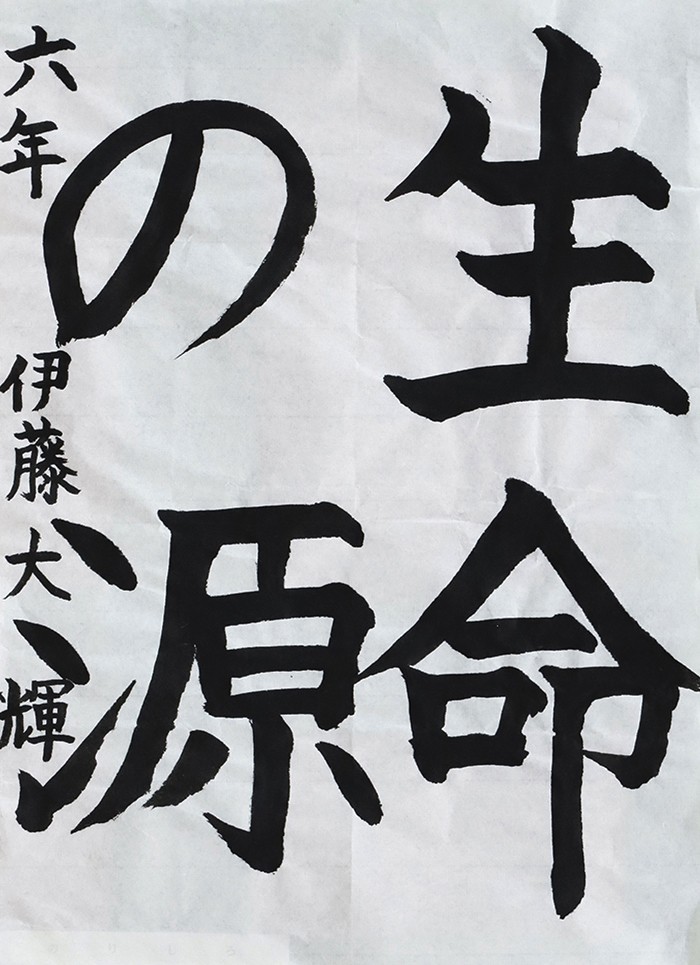 生命
の源
六年 伊藤大輝